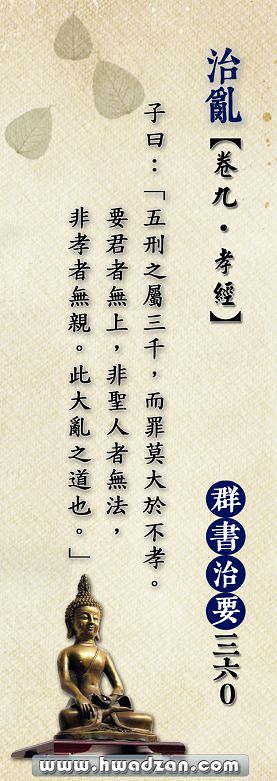 治亂
【卷九・孝經】
子曰：「五刑之屬三千，而罪莫大於不孝。
要君者無上，非聖人者無法，
非孝者無親。此大亂之道也。」
群書治要三六０
www.hwadzan.com